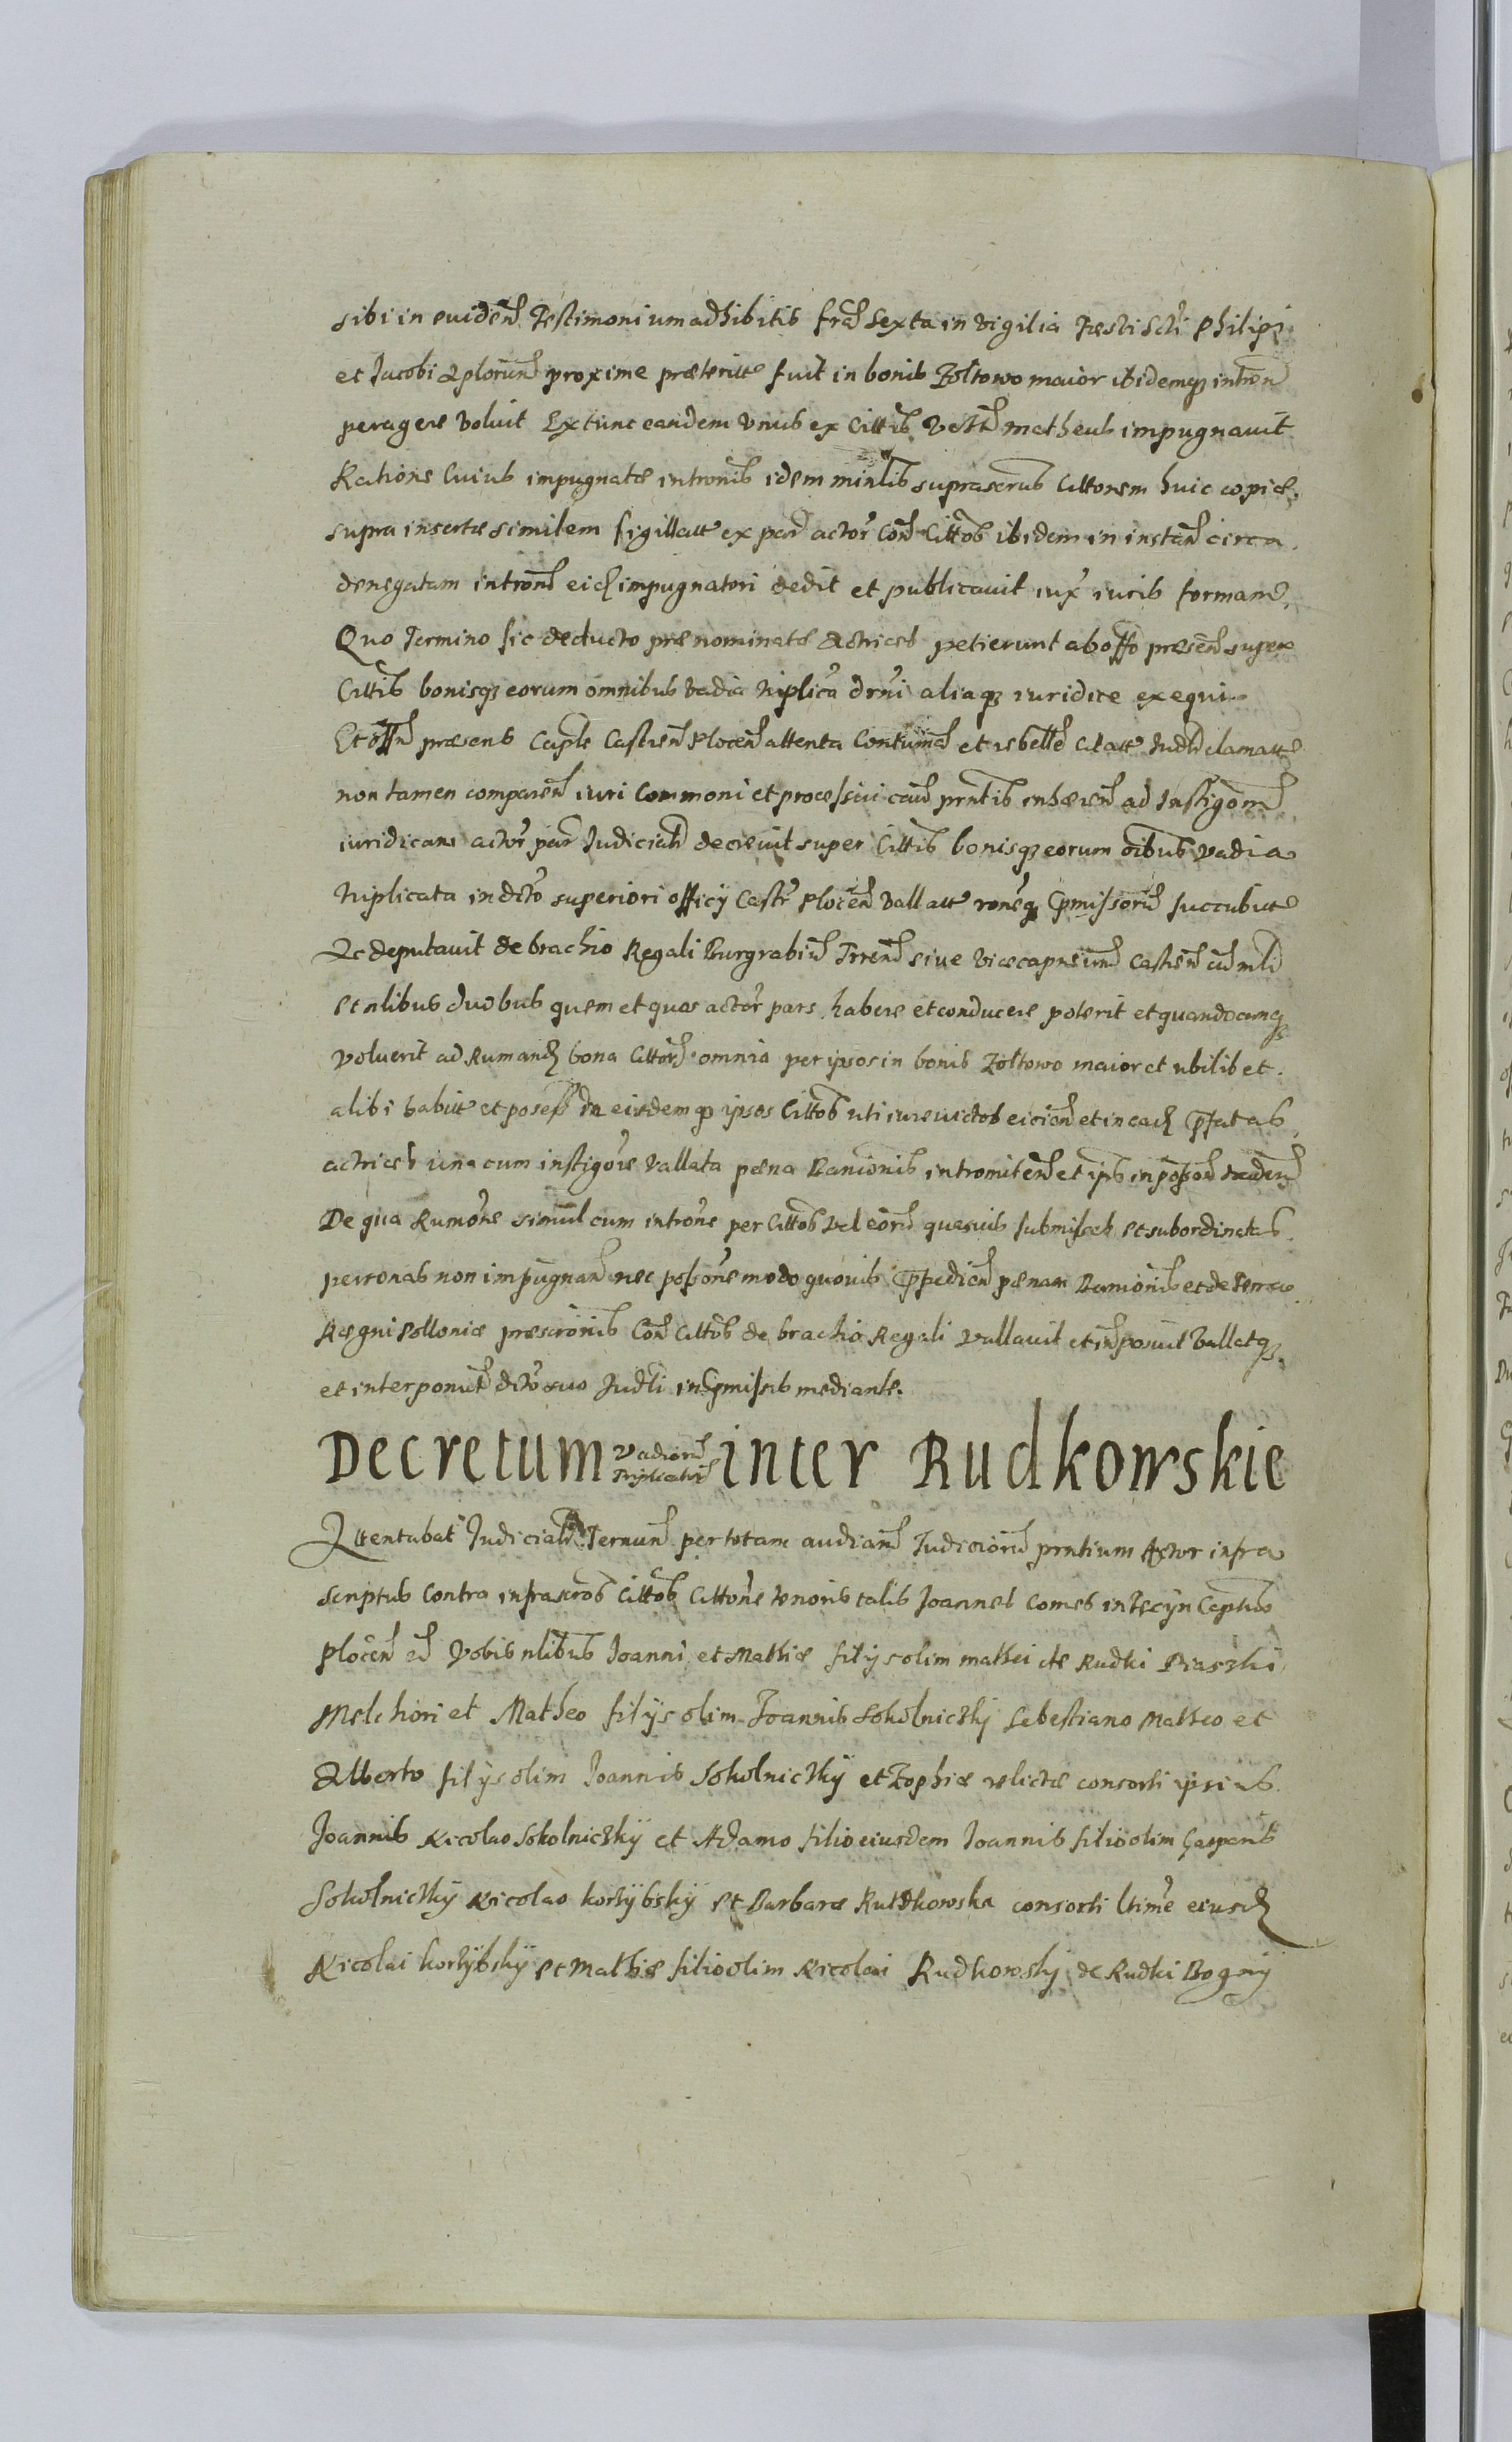 sibi in euideñ Testimonium adhibitis fr̃a Sexta in Vigilia Festi Scti Philipi
et Jacobi Aplorum proxime præteritæ fuit in bonis Zoltowo maior ibidemq3 intron
peragere voluit Extunc eandem Vnus ex Cittis matheus impugnauit
Ratione Cuius impugnatæ intronis idem minlis suprascrus Cittonem huic copiæ
supra insertæ similem sigillatt ex par actor Con Cittos ibidem in instan circa
denegatam intron eid impugnatori dedit et publicauit iux iuris formam
Quo Termino sic deducto prænominatæ Actrices petierunt ab offo præsen super
Cittis bonisq3 eorum omnibus Vadia triplica drni aliaq3 iuridice exequi
Et offm præsens Caple Castren Plocen attenta Contuma et rebelle Citatt Judli clamatt
non tamen comparen iuri Commoni et processui caus prntis inhæren ad Instigom
iuridicam actor par Judicialr decreuit super Cittis bonisq3 eorum oibus Vadia
triplicata in dcto superiori officij Castr Plocen Vallatt roneq3 succubitt
Ac deputauit de brachio Regali Burgrabiu Trren siue Vicecapneum Castren cu mli
et nlibus duobus quem et quos actor pars habere et conducere poterit et quandocunq3
Voluerit ad Rumand bona Cittor omnia per ipsos in bonis Zoltowo maior et ubilibet
alibi habitt et posess ipsos Cittos uti iure uictos eicien et in ead
actrices una cum instigore Vallata pæna Banionis intromiten et ipis in posson traden
De qua Rumone simul cum introne per Cittos Vel eoru quasuis submissas et subordinatas
personas non impugnan nec possone modo quouis pænam Banionis et de terra
Regni Polloniæ præscronis Con Cittos de brachio Regali Vallauit et imposuit Vallatq3
et interponit dcto suo Judli in mediante.
Decretum Vadioru Triplicator inter Rudkowskie
Attentabat Judicialr Termin per totam audian Judicioru prntium Actor infra
scriptus Contra infrascros Cittos Cittone tenoris talis Joannes Comes in Tecyn Capneus
Plocen Vobis nlibus Joanni et Mathiæ filijs olim mathei de Rudki Piaszki
Melchiori et Matheo filijs olim Joannis Sokolniczkj Sebestiano Matteo et
Alberto filijs olim Joannis Sokolniczkij et Zophiæ relictæ consorti ipsius
Joannis Nicolao Sokolniczkij et Adamo filio eiusdem Joannis filio olim Gasparis
Sokolniczkij Nicolao korzijbskij et Barbaræ Rutdkowska consorti ltime eiusd
Nicolai korzijbskij et Mathiæ filio olim Nicolai Rudkowskj de Rudki